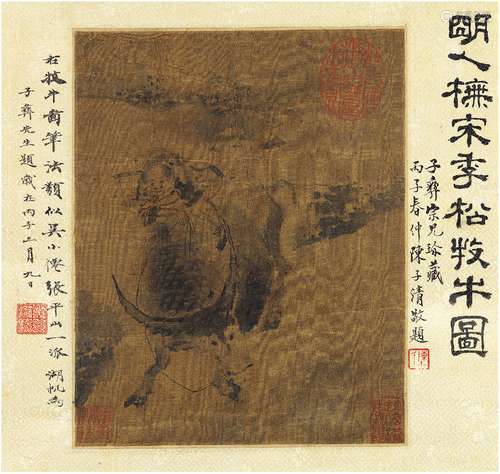 明人橅宋李松牧牛圖
子彝宗兄珍藏
丙子春仲陳子清敬題
右牧牛圖筆法類似吳小僊張平山一派湖帆為
子彝先生題 歲在丙子三月九日